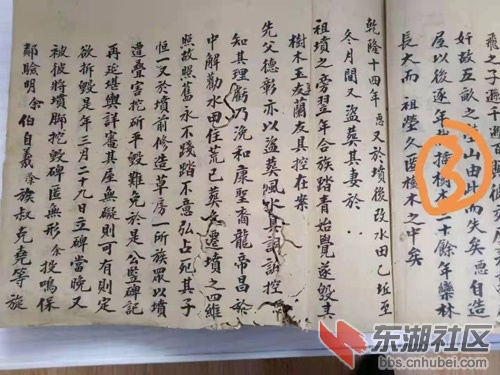 飛之子千
奸故五畝之 山由此而失矣 惡自造
屋以後逐年 樹木二十餘年欒林
長大而 祖塋久匿樹木之中矣
③
乾隆十四年 惡又於墳後改水田已近至
冬月間又盜葬其妻於
祖墳之旁翌年合族踏青始覺遂毀其
樹木玉友蘭友具控在案
先父德彰亦以盜葬風水具詞訴控
知其理虧乃浼和康聖裔龍帝昌於
中解勸水田任荒已葬 遷墳之四維
照故照舊永不踐踏不意弘占死其子
恒一又於墳前修造草房一所族眾以墳
遭疊害挖斫平毀難免於是公豎碑記
再延堪輿詳審其屋無礙則可有則定
欲拆毀是年三月二十九日立碑當晚又
被彼將墳腳挖毀碑匿無形 余投鳴保
鄰驗明余伯自義 族叔克堯等旋
东湖社区
bbs.cnhubei.com